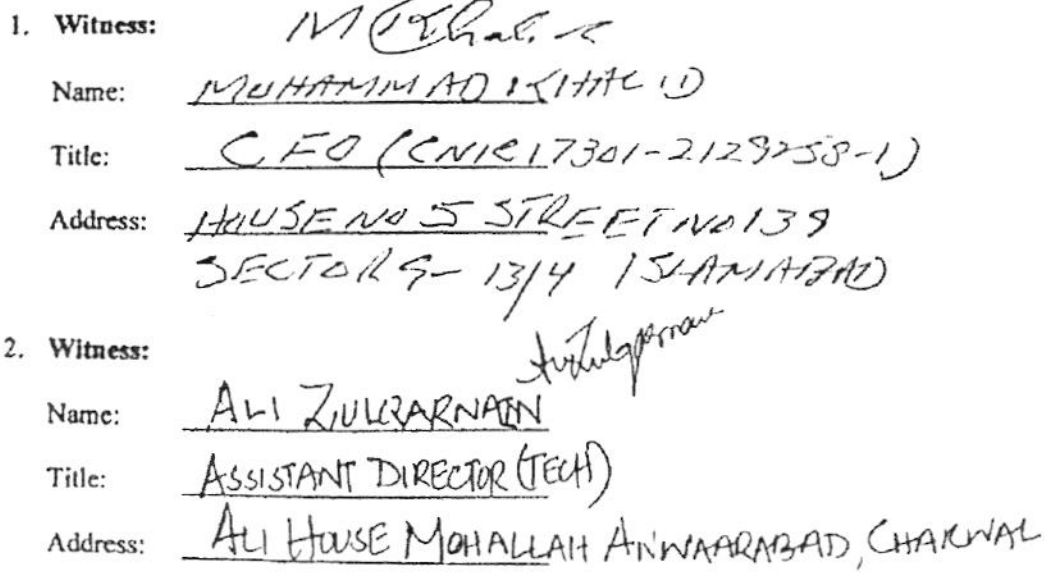 1. Witness: M Khalid
Name: MUHAMMAD KHALID
Title: CFO (CNIC 17301-2129258-1)
Address: HOUSE NO 5 STREET NO 139
SECTOR G-13/4 ISLAMABAD
2. Witness: Ali Zulqarnain
Name: ALI ZULQARNAIN
Title: ASSISTANT DIRECTOR (TECH)
Address: ALI HOUSE MOHALLAH ANWAARABAD, CHAKWAL